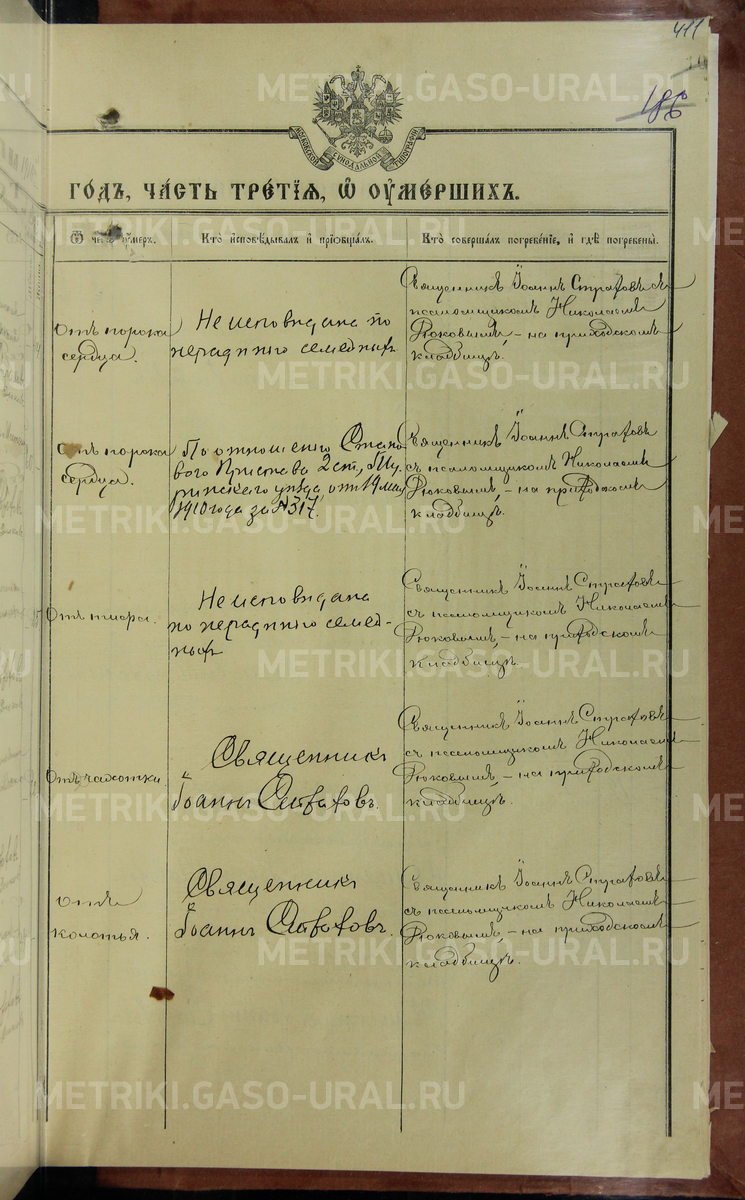 411
186
МОСКОВСКОЙ СѴНОДАЛЬНОЙ ТИПОГРАФІИ
ГОДЪ, ЧАСТЬ ТРЕТІЯ, Ѡ ОУМЕРШИХЪ.
Ѿ чего оумеръ.
Кто исповѣдывалъ и пріобщалъ.
Кто совершалъ погребеніе, и гдѣ погребены.
Отъ порока
сердца.
Не исповѣдана по
нерадѣнію семейныхъ
Священникъ Іоаннъ Стратовъ съ
псаломщикомъ Николаемъ
Рюковымъ, – на приходскомъ
кладбищѣ.
Отъ порока
сердца.
По отношенію Стано
вого Пристава 2 ст., Шад
ринскаго уѣзда, отъ 19 мая
1910 года за № 317.
Священникъ Іоаннъ Стратовъ
съ псаломщикомъ Николаемъ
Рюковымъ, – на приходскомъ
кладбищѣ.
Отъ тифа.
Не исповѣдана
по нерадѣнію семей-
ныхъ
Священникъ Іоаннъ Стратовъ
съ псаломщикомъ Николаемъ
Рюковымъ, – на приходскомъ
кладбищѣ.
Отъ чахотки
Священникъ
Іоаннъ Стратовъ.
Священникъ Іоаннъ Стратовъ
съ псаломщикомъ Николаемъ
Рюковымъ, – на приходскомъ
кладбищѣ.
Отъ
колотья.
Священникъ
Іоаннъ Стратовъ.
Священникъ Іоаннъ Стратовъ
съ псаломщикомъ Николаемъ
Рюковымъ, – на приходскомъ
кладбищѣ.
METRIKI.GASO-URAL.RU